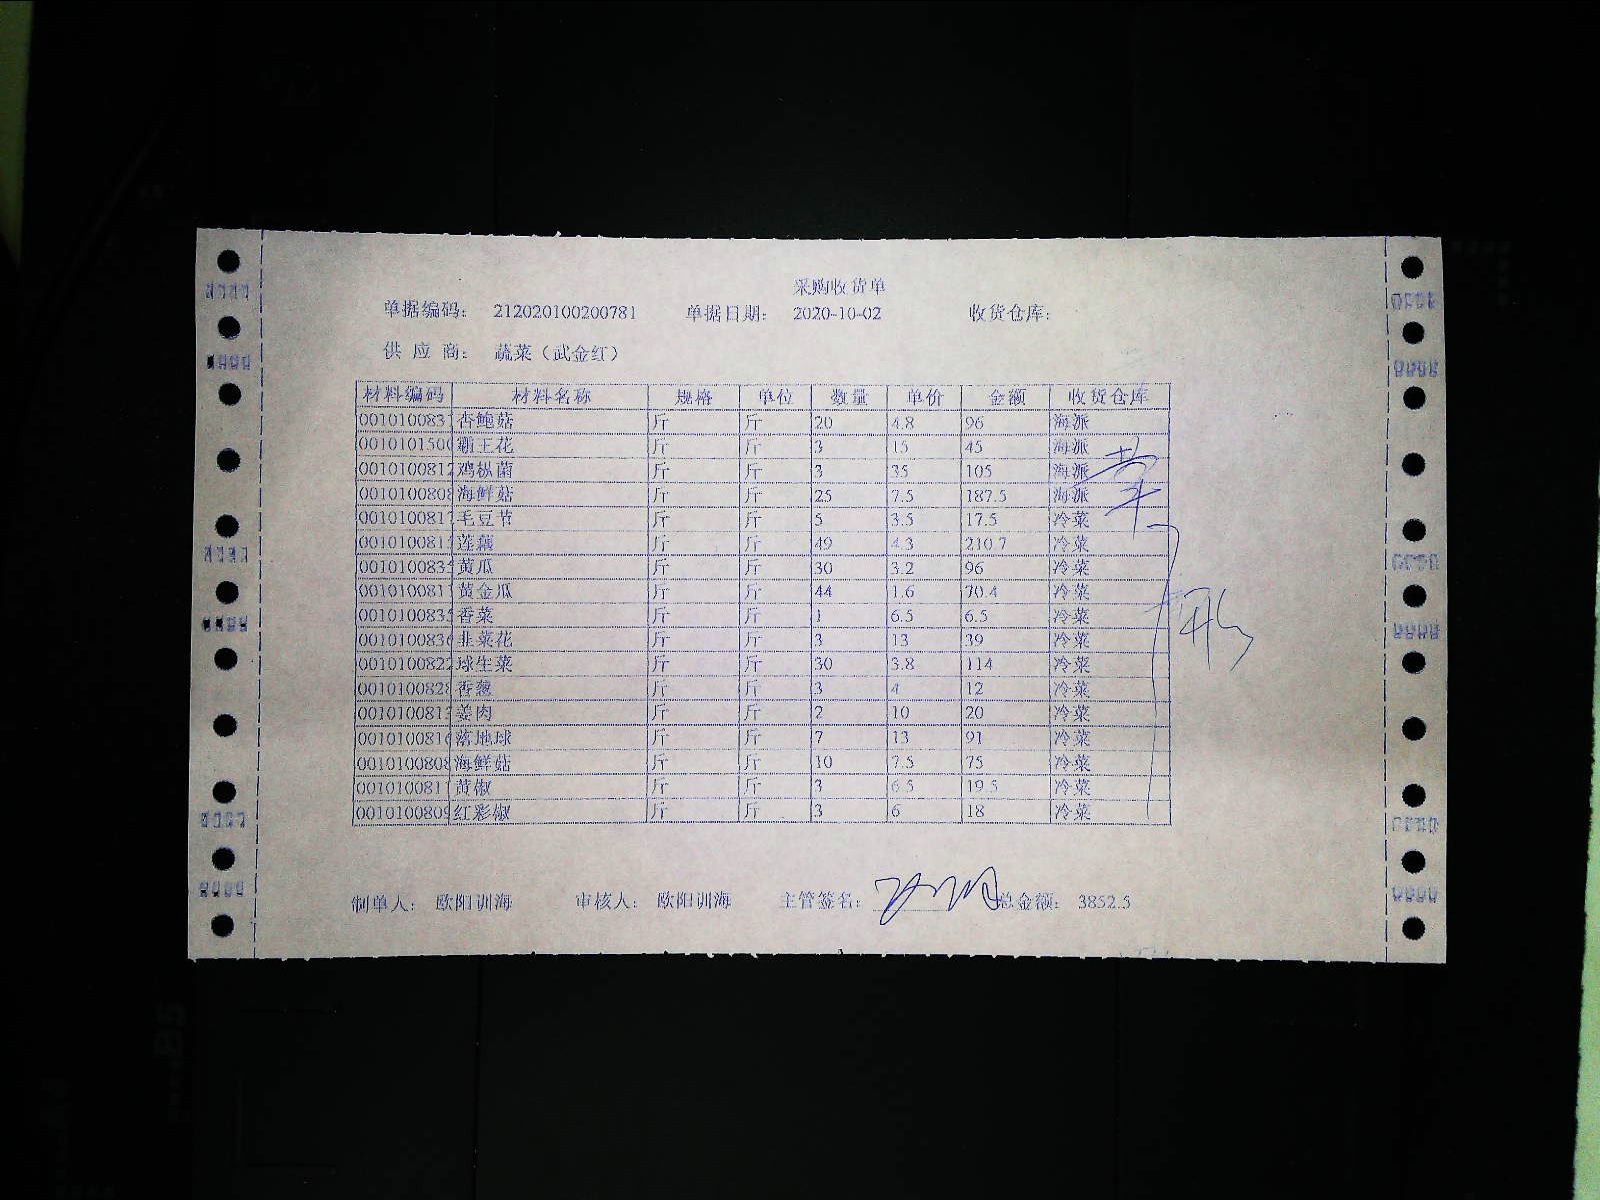 采购收货单
单据编码： 212020100200781 单据日期： 2020-10-02 收货仓库：
供 应 商： 蔬菜（武金红）
材料编码 材料名称 规格 单位 数量 单价 金额 收货仓库
001010083 杏鲍菇 斤 斤 20 4.8 96 海派
001010150 霸王花 斤 斤 3 15 45 海派
001010081 鸡枞菌 斤 斤 3 35 105 海派
001010080 海鲜菇 斤 斤 25 7.5 187.5 海派
001010081 毛豆节 斤 斤 5 3.5 17.5 冷菜
001010081 莲藕 斤 斤 49 4.3 210.7 冷菜
001010083 黄瓜 斤 斤 30 3.2 96 冷菜
001010081 黄金瓜 斤 斤 44 1.6 70.4 冷菜
001010083 香菜 斤 斤 1 6.5 6.5 冷菜
001010083 韭菜花 斤 斤 3 13 39 冷菜
001010082 球生菜 斤 斤 30 3.8 114 冷菜
001010082 香葱 斤 斤 3 4 12 冷菜
001010081 姜肉 斤 斤 2 10 20 冷菜
001010081 落地球 斤 斤 7 13 91 冷菜
001010080 海鲜菇 斤 斤 10 7.5 75 冷菜
001010081 黄椒 斤 斤 3 6.5 19.5 冷菜
001010080 红彩椒 斤 斤 3 6 18 冷菜
制单人： 欧阳训海 审核人： 欧阳训海 主管签名： 总金额： 3852.5